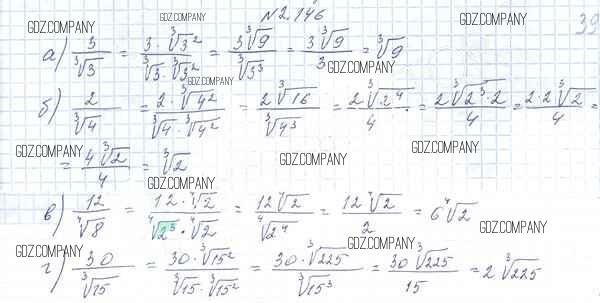 №2.146
39
GDZ.COMPANY GDZ.COMPANY GDZ.COMPANY
а) 3/∛3 = 3·∛3²/(∛3·∛3²) = 3∛9/∛3³ = 3∛9/3 = ∛9
GDZ.COMPANY
GDZ.COMPANY
б) 2/∛4 = 2·∛4²/(∛4·∛4²) = 2∛16/∛4³ = 2∛2⁴/4 = 2∛(2³·2)/4 = 2·2∛2/4 =
GDZ.COMPANY GDZ.COMPANY GDZ.COMPANY
= 4∛2/4 = ∛2
GDZ.COMPANY
в) 12/⁴√8 = 12·⁴√2/(⁴√2³·⁴√2) = 12⁴√2/⁴√2⁴ = 12⁴√2/2 = 6⁴√2
GDZ.COMPANY GDZ.COMPANY GDZ.COMPANY
г) 30/∛15 = 30·∛15²/(∛15·∛15²) = 30·∛225/∛15³ = 30∛225/15 = 2∛225